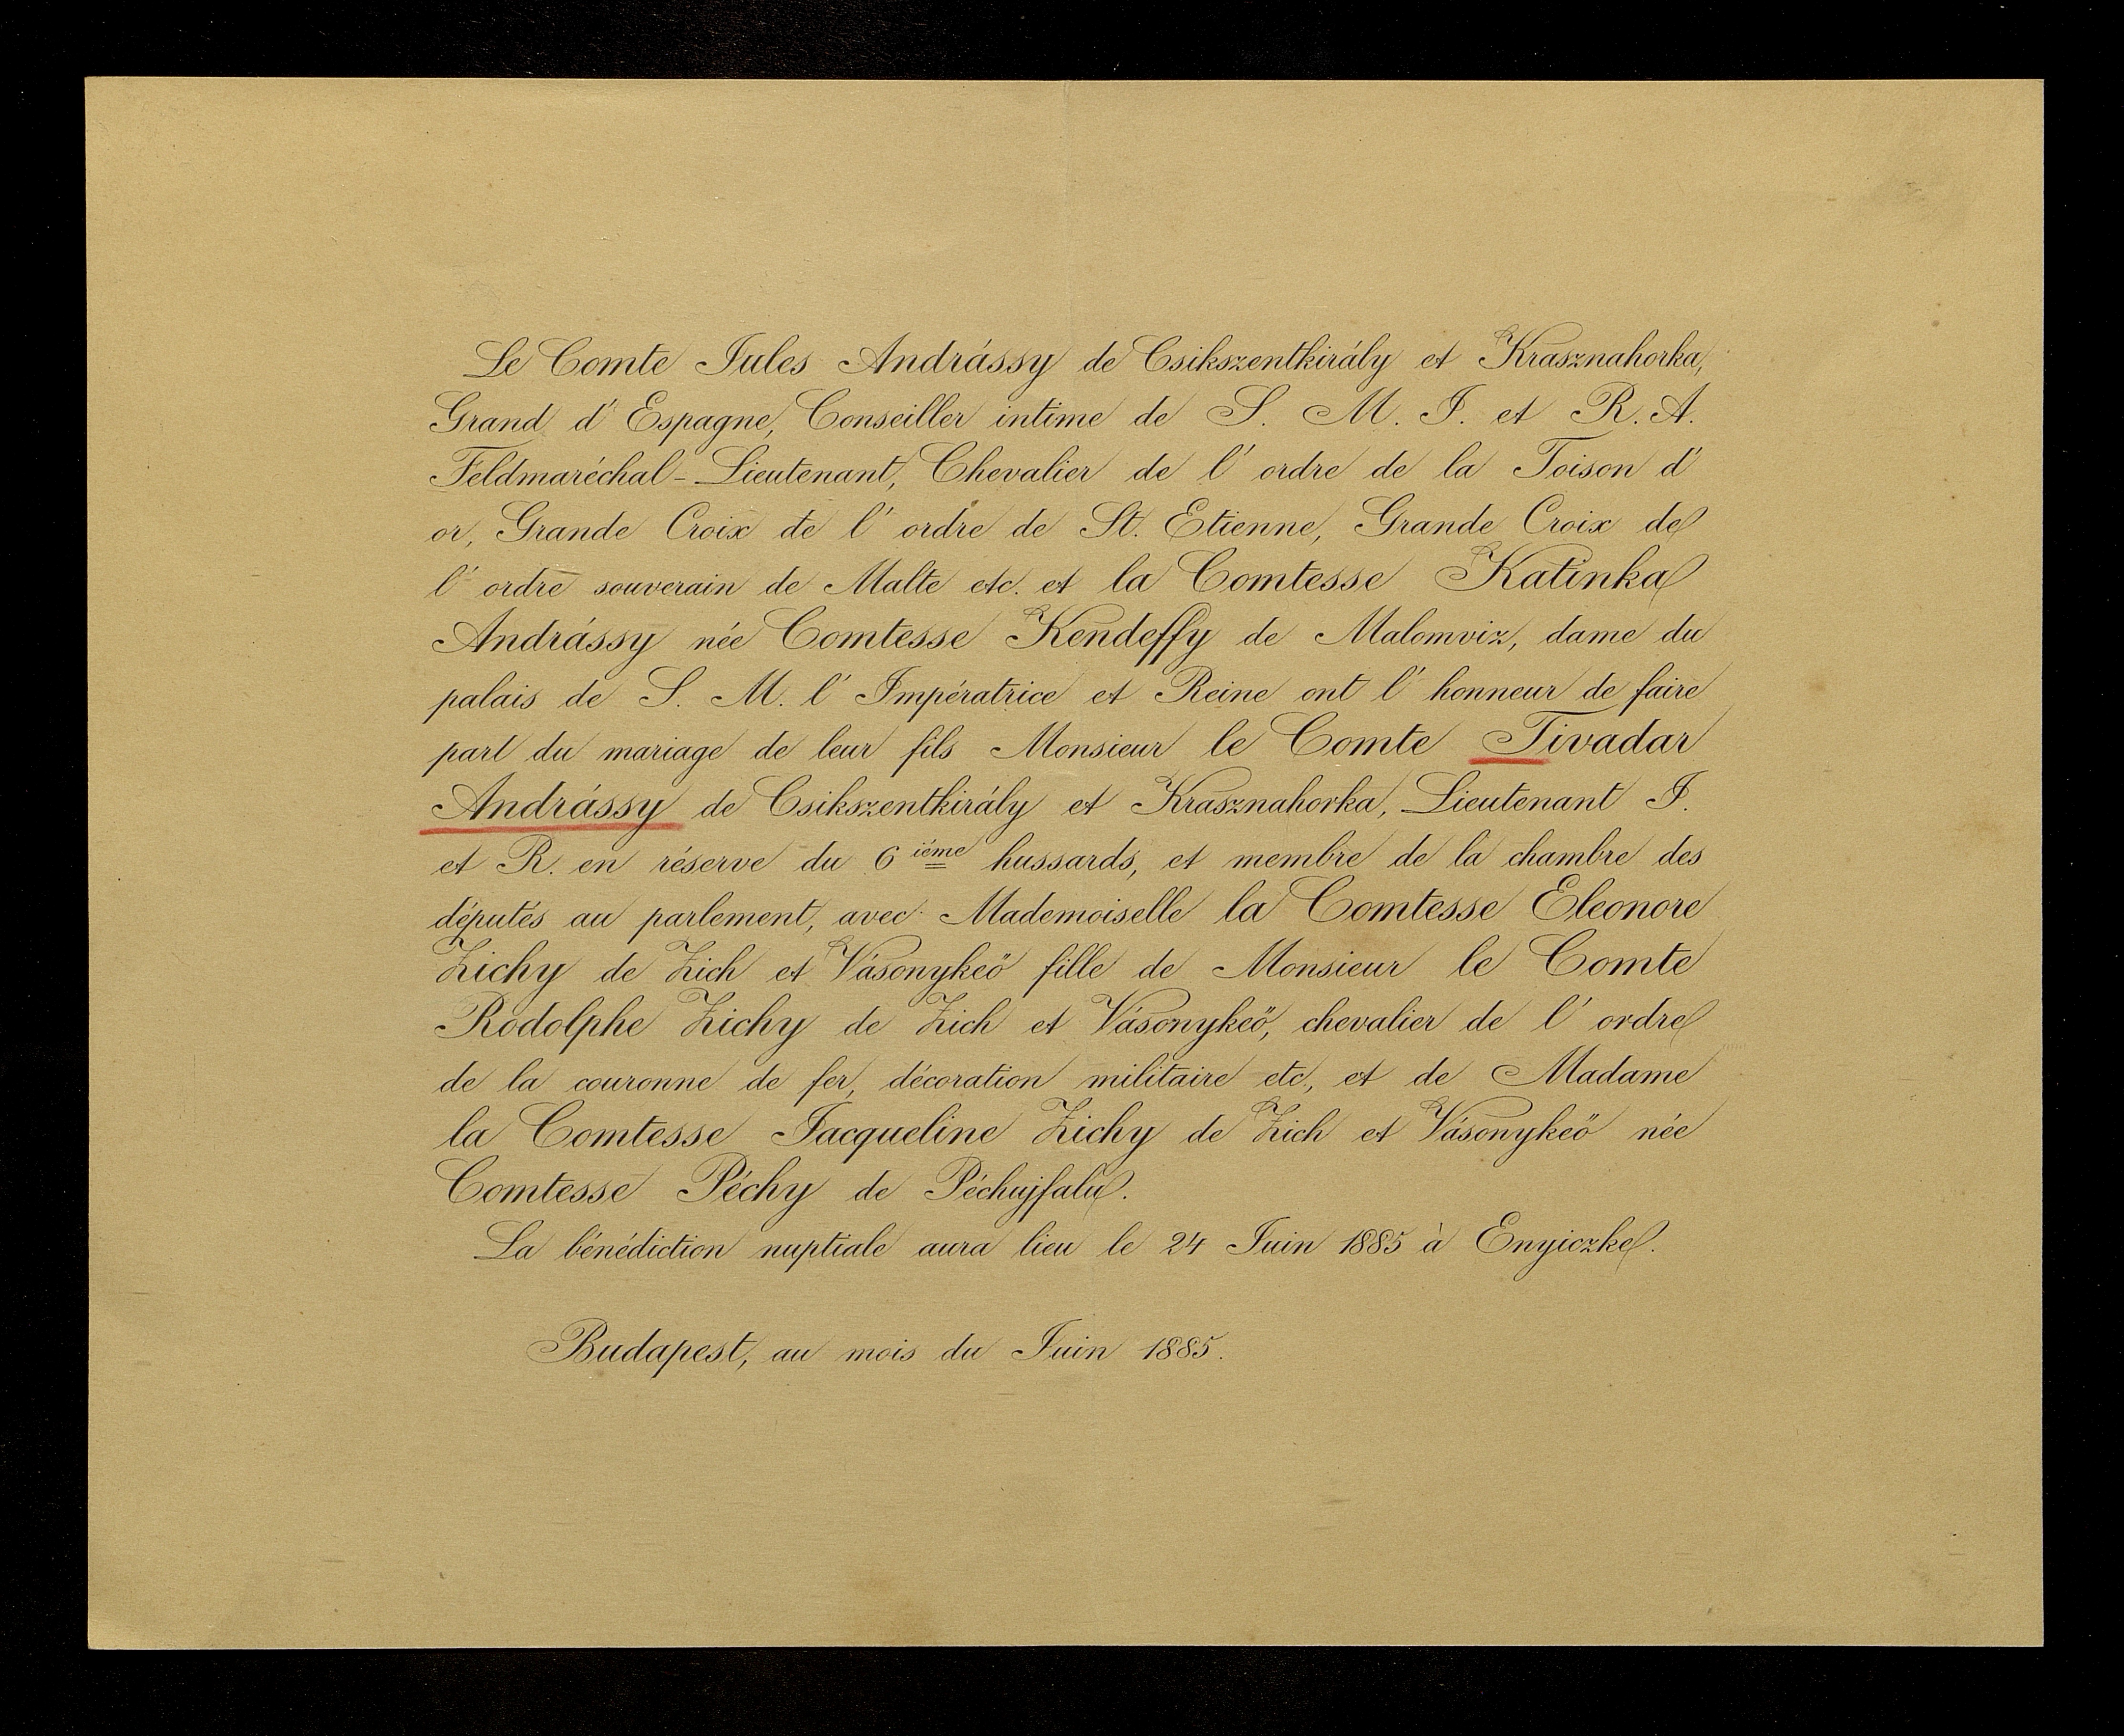 Le Comte Jules Andrássy de Csikszentkirály et Krasznahorka,
Grand d' Espagne, Conseiller intime de S. M. I. et R. A.
Feldmaréchal-Lieutenant, Chevalier de l' ordre de la Toison d'
or, Grande Croix de l' ordre de St. Etienne, Grande Croix de
l' ordre souverain de Malte etc. et la Comtesse Katinka
Andrássy née Comtesse Kendeffy de Malomviz, dame du
palais de S. M. l' Impératrice et Reine ont l' honneur de faire
part du mariage de leur fils Monsieur le Comte Tivadar
Andrássy de Csikszentkirály et Krasznahorka, Lieutenant I.
et R. en réserve du 6 ième hussards, et membre de la chambre des
députés au parlement, avec Mademoiselle la Comtesse Eleonore
Zichy de Zich et Vásonykeö fille de Monsieur le Comte
Rodolphe Zichy de Zich et Vásonykeö, chevalier de l' ordre
de la couronne de fer, décoration militaire etc, et de Madame
la Comtesse Jacqueline Zichy de Zich et Vásonykeö née
Comtesse Péchy de Péchujfalu.
La bénédiction nuptiale aura lieu le 24 Juin 1885 à Enyiczke.
Budapest, au mois du Juin 1885.